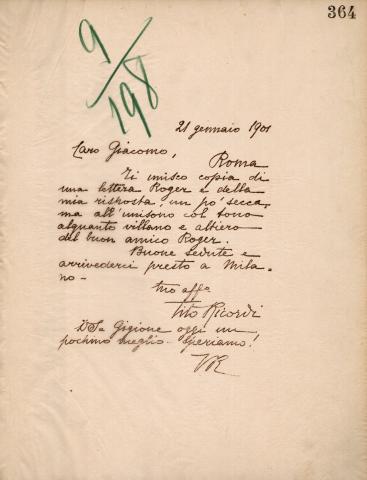 364
9/198
21 gennaio 1901
Caro Giacomo,
Roma
Ti unisco copia di
una lettera Roger e della
mia risposta, un po' secca,
ma all'unisono col tono
alquanto villano e altiero
del buon amico Roger.
Buone sedute e
arrivederci presto a Mila-
no -
tuo affo
Tito Ricordi
Gigione oggi un
pochino meglio - speriamo!
TR